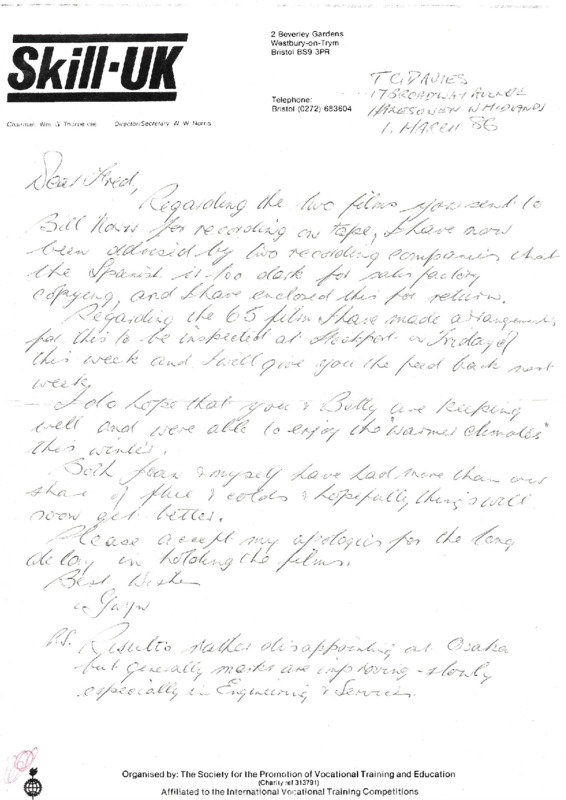 Skill-UK
Chairman: Wm. G. Thorpe CBE Director/Secretary W. W. Norris
2 Beverley Gardens
Westbury-on-Trym
Bristol BS9 3PR
Telephone:
Bristol (0272) 683604
T G DAVIES
17 BROADWAY AVENUE
HALESOWEN W MIDLANDS
1. MARCH 86
Dear Fred,
Regarding the two films you sent to
Bill Norris for recording on tape, I have now
been advised by two recording companies that
the Spanish is too dark for satisfactory
copying, and I have enclosed this for return.
Regarding the 65 film I have made arrangements
for this to be inspected at Stockport on Friday of
this week and I will give you the feed back next
week.
I do hope that you & Betty are keeping
well and were able to enjoy the "warmer climates"
this winter.
Both Jean & myself have had more than our
share of flue & colds & hopefully things will
soon get better.
Please accept my apologies for the long
delay in holding the films.
Best Wishes
Gwyn
P.S. Results rather disappointing at Osaka
but generally marks are improving - slowly
especially in Engineering & Services.
Organised by: The Society for the Promotion of Vocational Training and Education
(Charity ref 313791)
Affiliated to the International Vocational Training Competitions